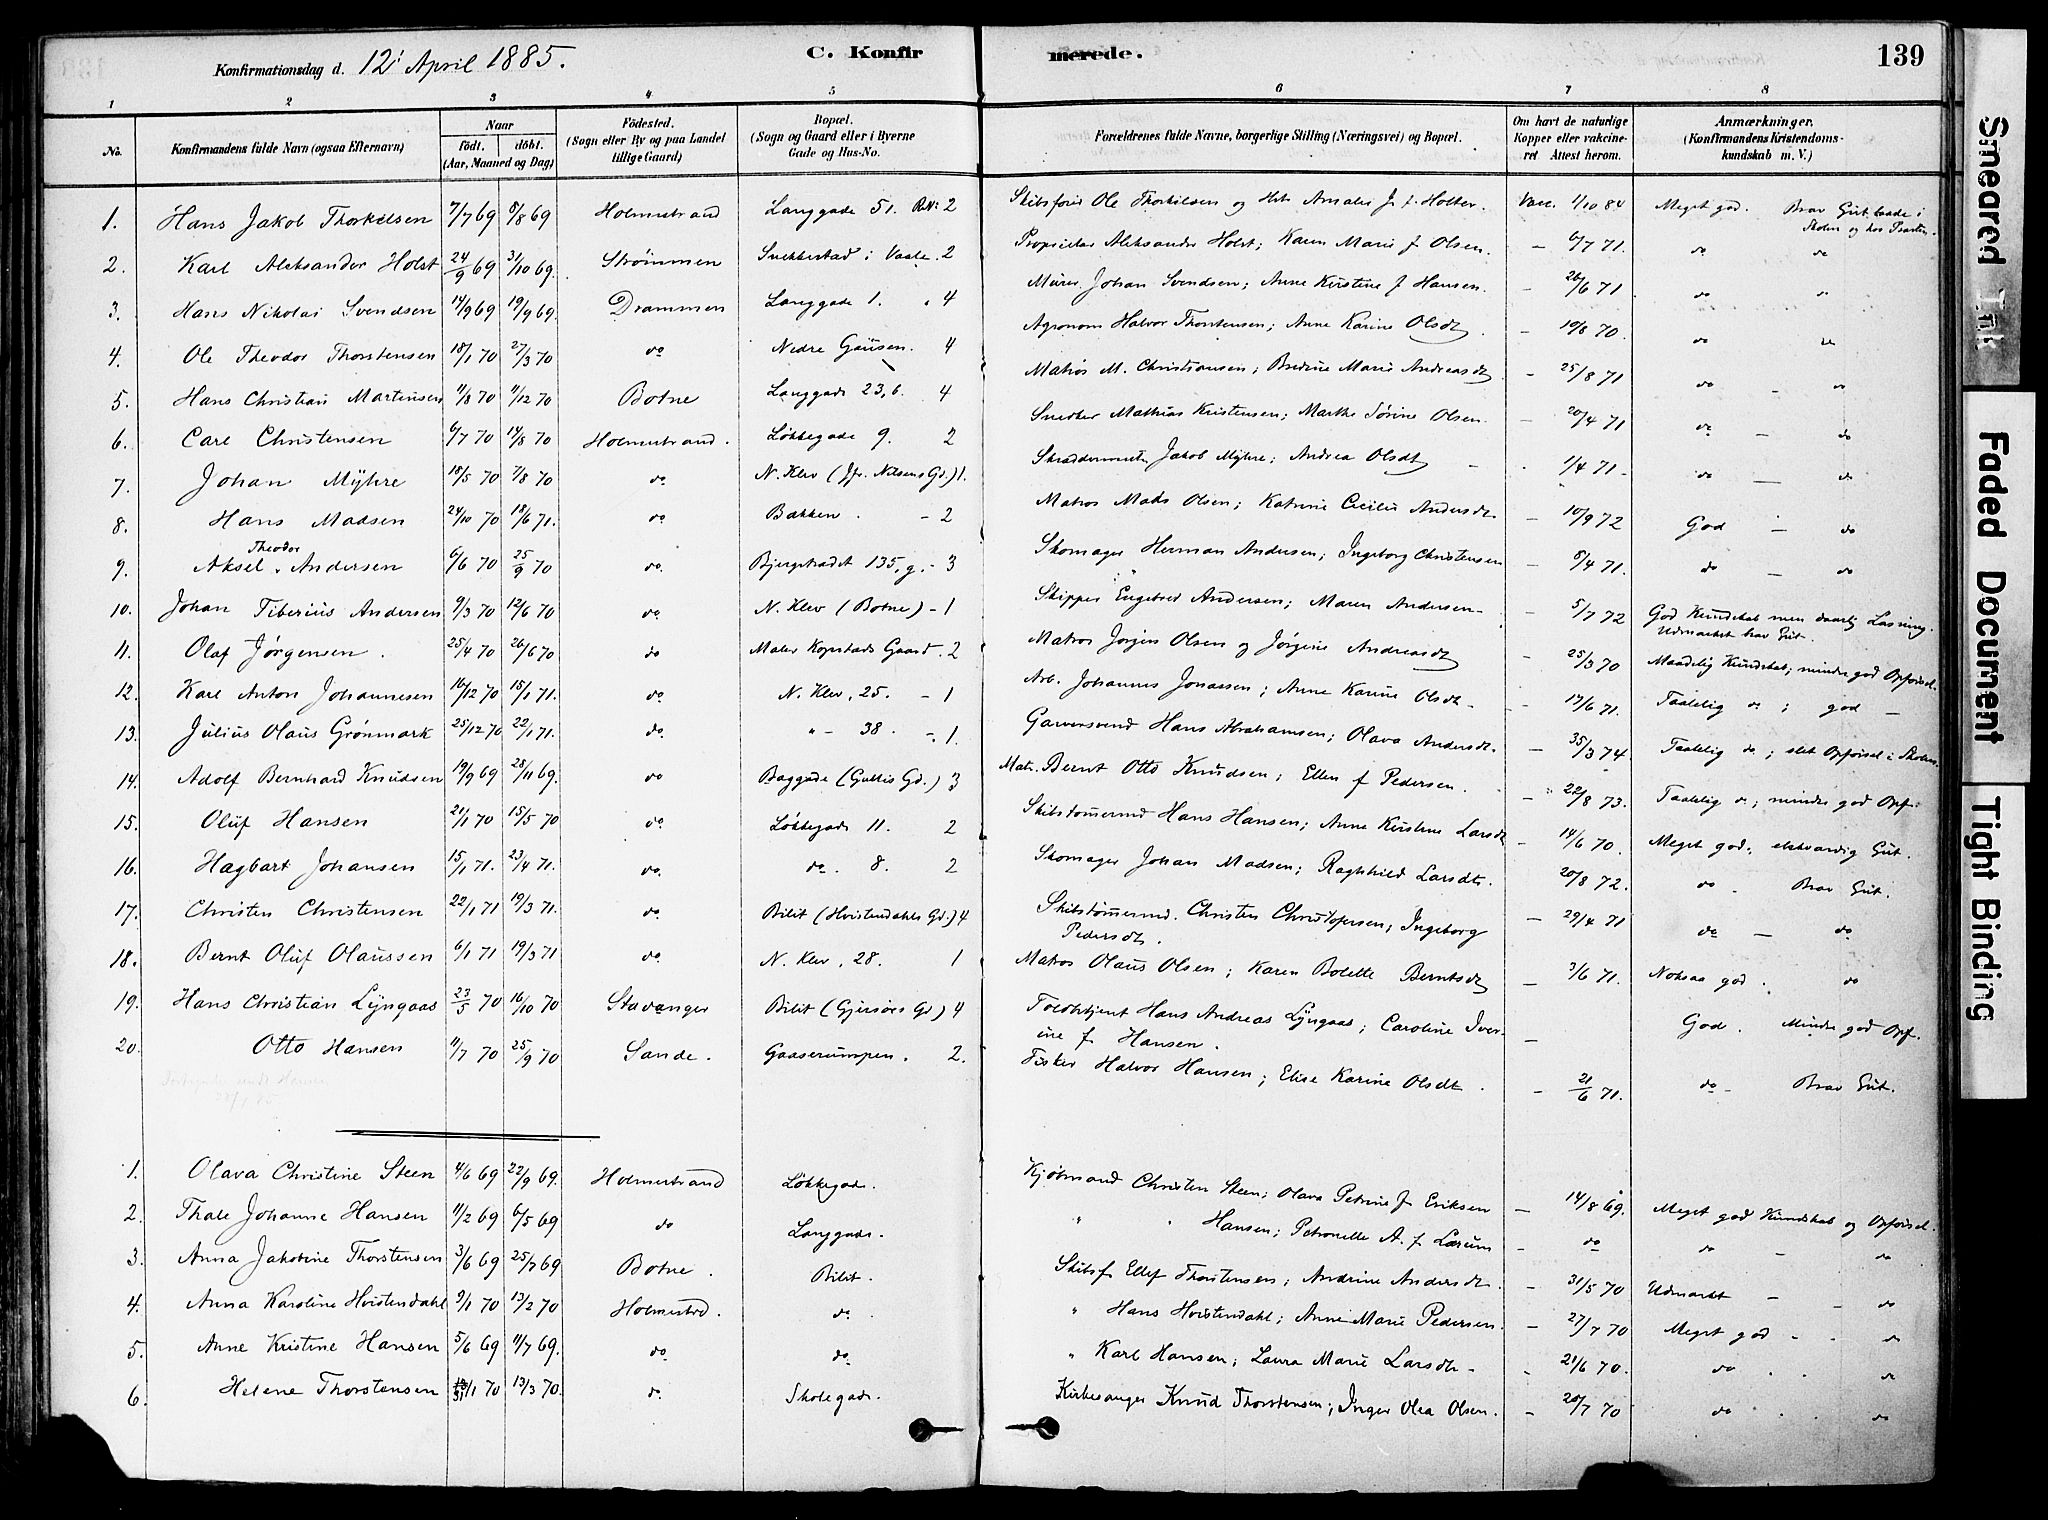 Konfirmationsdag d. 12' April 1885. C. Konfir merede. 139
1 2 3 4 5 6 7 8
No. Konfirmandens fulde Navn (ogsaa Efternavn) Naar født. døbt. (Aar, Maaned og Dag) Fødested. (Sogn eller By og paa Landet tillige Gaard) Bopæl. (Sogn og Gaard eller i Byerne Gade og Hus-No. Forældrenes fulde Navne, borgerlige Stilling (Næringsvei) og Bopæl. Om havt de naturlige Kopper eller vakcineret Attest herom. Anmærkninger. (Konfirmandens Kristendomskundskab m. V.)
1. Hans Jakob Thorkelsen 7/7 69 8/8 69 Holmestrand Langgade 51. 2 Skibsfører Ole Thorkildsen og Amalie J. f. Holter. Vacc. 1/10 84 Meget god. Brav Gut baade i Skolen og hos Præsten.
2. Karl Aleksander Holst 24/9 69 31/10 69. Strømmen Snekkestad i Vaale. 2 Proprietær Aleksander Holst; Karen Marie f Olsen. – 6/7 71. do do
3. Hans Nikolai Svendsen 14/9 69 19/9 69. Drammen Langgade 1. " 4 Murer Johan Svendsen; Anne Kirstine f Hansen. – 28/6 71 do "
4. Ole Theodor Thorstensen 18/1 70 27/3 70 do Nedre Gausen. 4 Agronom Halvor Thorstensen; Anne Karine Olsdt. – 19/8 70. do do
5. Hans Christian Martensen 11/8 70 11/12 70 Botne Langgade 23,6. 4 Matros M. Christiansen; Bredine Marie Andreasdt – 25/8 71 do – do
6. Carl Christensen 6/7 70 14/8 70 Holmestrand. Løkkegade 9. 2 Snedker Mathias Kristensen; Marthe Sørine Olsen. – 20/4 71 do – do
7. Johan Myhre 18/5 70 7/8 70 do N. Klev (Jfr. Nilsens Gd.) 1. Skreddermester Jakob Myhre; Andrea Olsdt – 1/4 71 – do – do
8. Hans Madsen 24/10 70 18/6 71. do Bakken. – 2 Matros Mads Olsen; Katrine Cecilie Andersdt. – 10/9 72 God – do
9. Aksel Theodor Andersen 6/6 70 25/9 70 do. Bjergstrædet 135, g. – 3 Skomager Herman Andersen; Ingeborg Christensen – 8/4 71. do – do
10. Johan Tiberius Andersen 9/3 70 12/6 70 do N. Klev (Botne) – 1 Skipper Engebret Andersen; Maren Andersen – – 5/7 72 God Kundskab men daarlig Læsning. Udmærket brav Gut.
11. Olaf Jørgensen. 25/4 70 26/6 70 do Maler Kopstads Gaard. 2 Matros Jørgen Olsen og Jørgine Andreasdt – 25/3 70 Maadelig Kundskab; mindre god Opførsel.
12. Karl Anton Johannesen 16/12 70 15/1 71. do N. Klev, 25. – 1 Arb. Johannes Jonassen; Anne Karine Olsdt – – 17/6 71. Taalelig do; god –
13. Julius Olaus Grønmark 25/12 70 22/1 71. do. " – 38. – 1. Garversvend Hans Abrahamsen; Olava Andersdt. – 35/3 74. Taalelig do; slet Opførsel i Skolen.
14. Adolf Bernhard Knudsen 19/9 69 28/11 69. do Baggade (Gullis Gd.) 3 Matr. Bernt Otto Knudsen; Ellen f Pedersen. – " 22/8 73. Taalelig do; mindre god Opf.
15. Oluf Hansen 21/1 70 15/5 70 do Løkkegade 11. 2 Skibstømmermd Hans Hansen; Anne Kirstine Larsdt – 14/6 70. Meget god. elskværdig Gut.
16. Hagbart Johansen 15/1 71. 23/4 71. do. do. 8. 2 Skomager Johan Madsen; Raghnhild Larsdt. 20/8 72. do. Brav Gut.
17. Christen Christensen 22/1 71 19/3 71. do. Bilit (Hvistendahls Gd.) 4 Skibstømmermd. Christen Christofersen; Ingeborg Pedersdt. – 29/4 71 do – do
18. Bernt Oluf Olaussen 6/1 71 19/3 71 do. N. Klev, 28. 1 Matros Olaus Olsen; Karen Bolette Berntsdt – 3/6 71. Noksaa god. do
19. Hans Christian Lyngaas 23/5 70 16/10 70 Stavanger Bilit (Gjersøes Gd) 4 Toldbetjent Hans Andreas Lyngaas; Caroline Iverine f Hansen. – God. Mindre god Opf.
20. Otto Hansen 11/7 70 25/9 70 Sande. Gaaserumpen. 2. Fisker Halvor Hansen; Elise Karine Olsdt. – 21/6 71. do – Brav Gut.
1. Olava Christine Steen 4/6 69 22/9 69. Holmestrand Løkkegade. Kjøbmand Christen Steen; Olava Petrine f Eriksen – 14/8 69. Meget god Kundskab og Opførsel.
2. Thale Johanne Hansen 11/2 69 6/5 69 do Langgade. " " Hansen; Petronelle A. f Larum – do do – do
3. Anna Jakobine Thorstensen 3/6 69 25/7 69 Botne. Bilit. Skibsf Ellef Thorstensen; Andrine Andersdt. – 31/5 70 Udmærket – – do
4. Anna Karoline Hvistendahl 9/1 70 13/2 70 Holmestrd. do. " Hans Hvistendahl; Anne Marie Pedersen. – 27/7 70 Meget god – . do
5. Anne Kristine Hansen 5/6 69 11/7 69. do do " Karl Hansen; Laura Marie Larsdt – – 21/6 70. do . . do
6. Helene Thorstensen 31/1 70 13/3 70. do. Skolegade. Kirkesanger Knud Thorstensen; Inger Olea Olsen. – 20/7 70 do . . do
Smeared Ink
Faded Document
Tight Binding